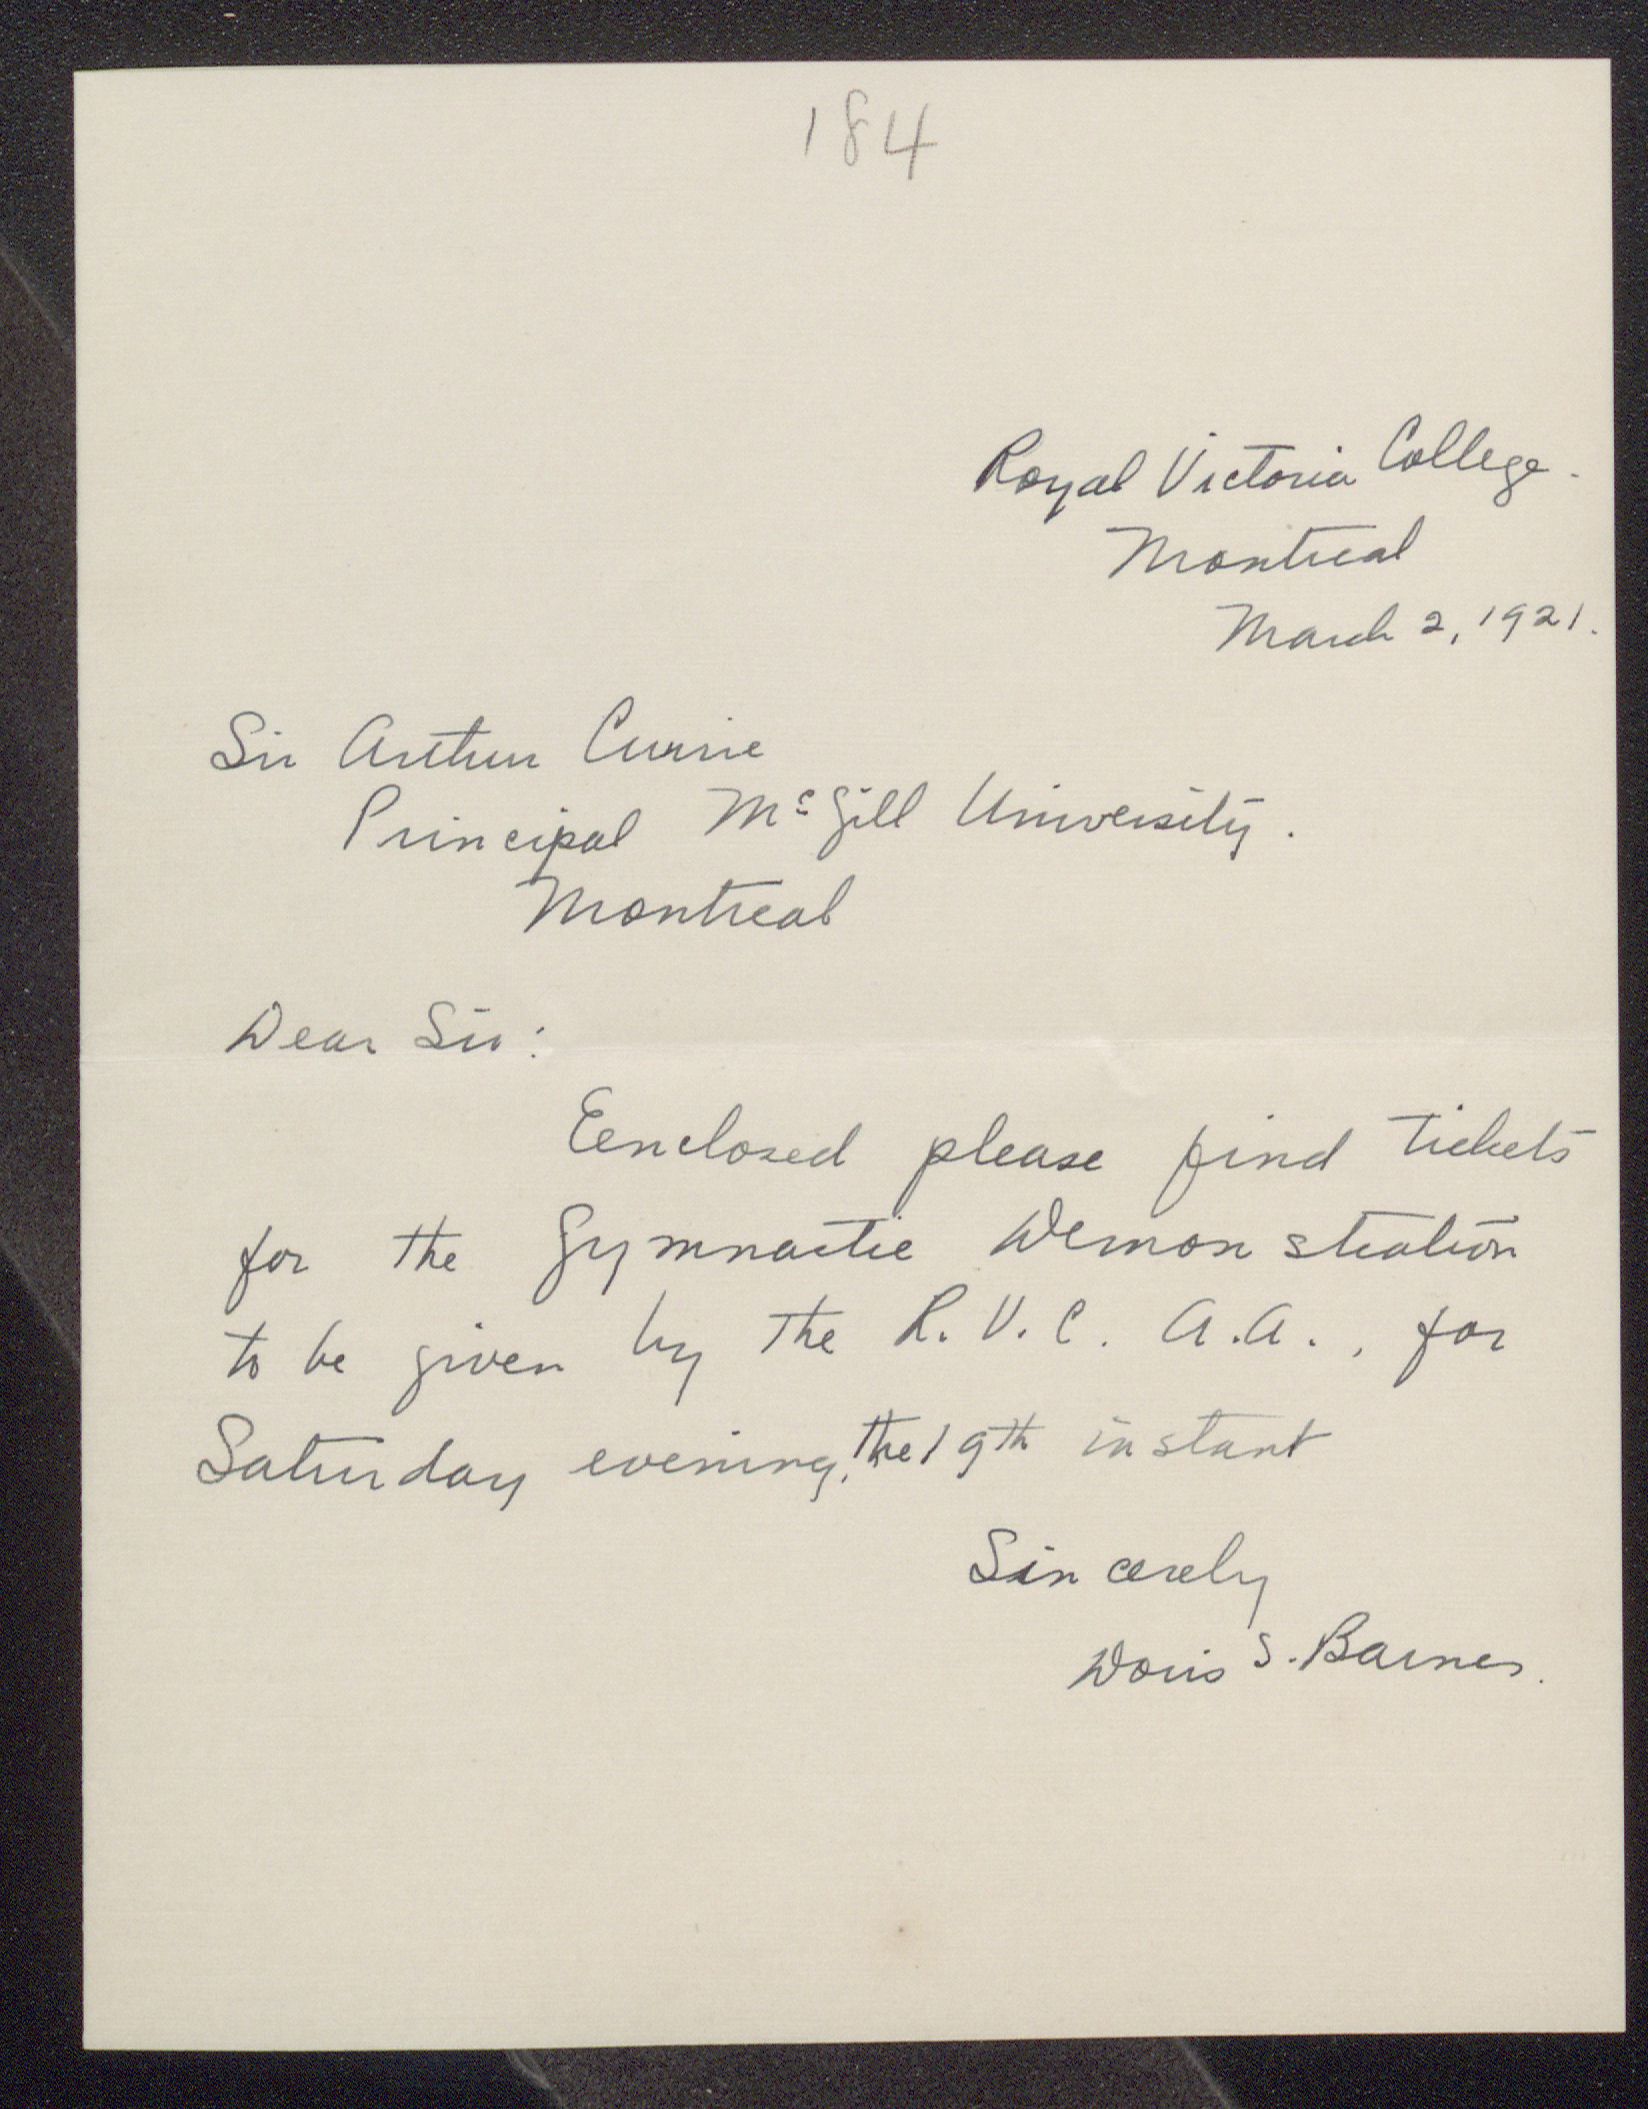 184
Royal Victoria College.
Montreal
March 2, 1921.
Sir Arthur Currie
Principal McGill University.
Montreal
Dear Sir:
Eenclosed please find tickets
for the Gymnastic Demonstration
to be given by the R.V.C. A.A., for
Saturday evening, the 19th instant
Sincerely
Doris S. Barnes.